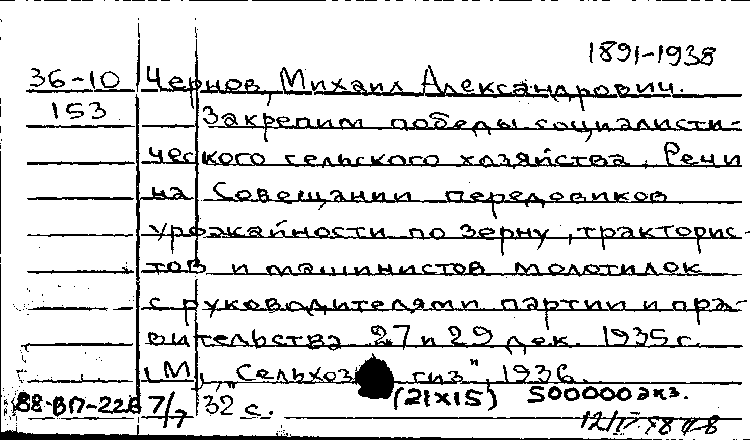 1891-1938
36-10 Чернов, Михаил Александрович.
153 Закрепим победы социалисти-
ческого сельского хозяйства. Речи
на Совещании передовиков
урожайности по зерну, тракторис-
тов и машинистов молотилок
с руководителями партии и пра-
вительства 27 и 29 дек. 1935 г.
М., "Сельхозгиз", 1936.
88-ВП-226 7/7 32 с. (21х15) 500000 экз.